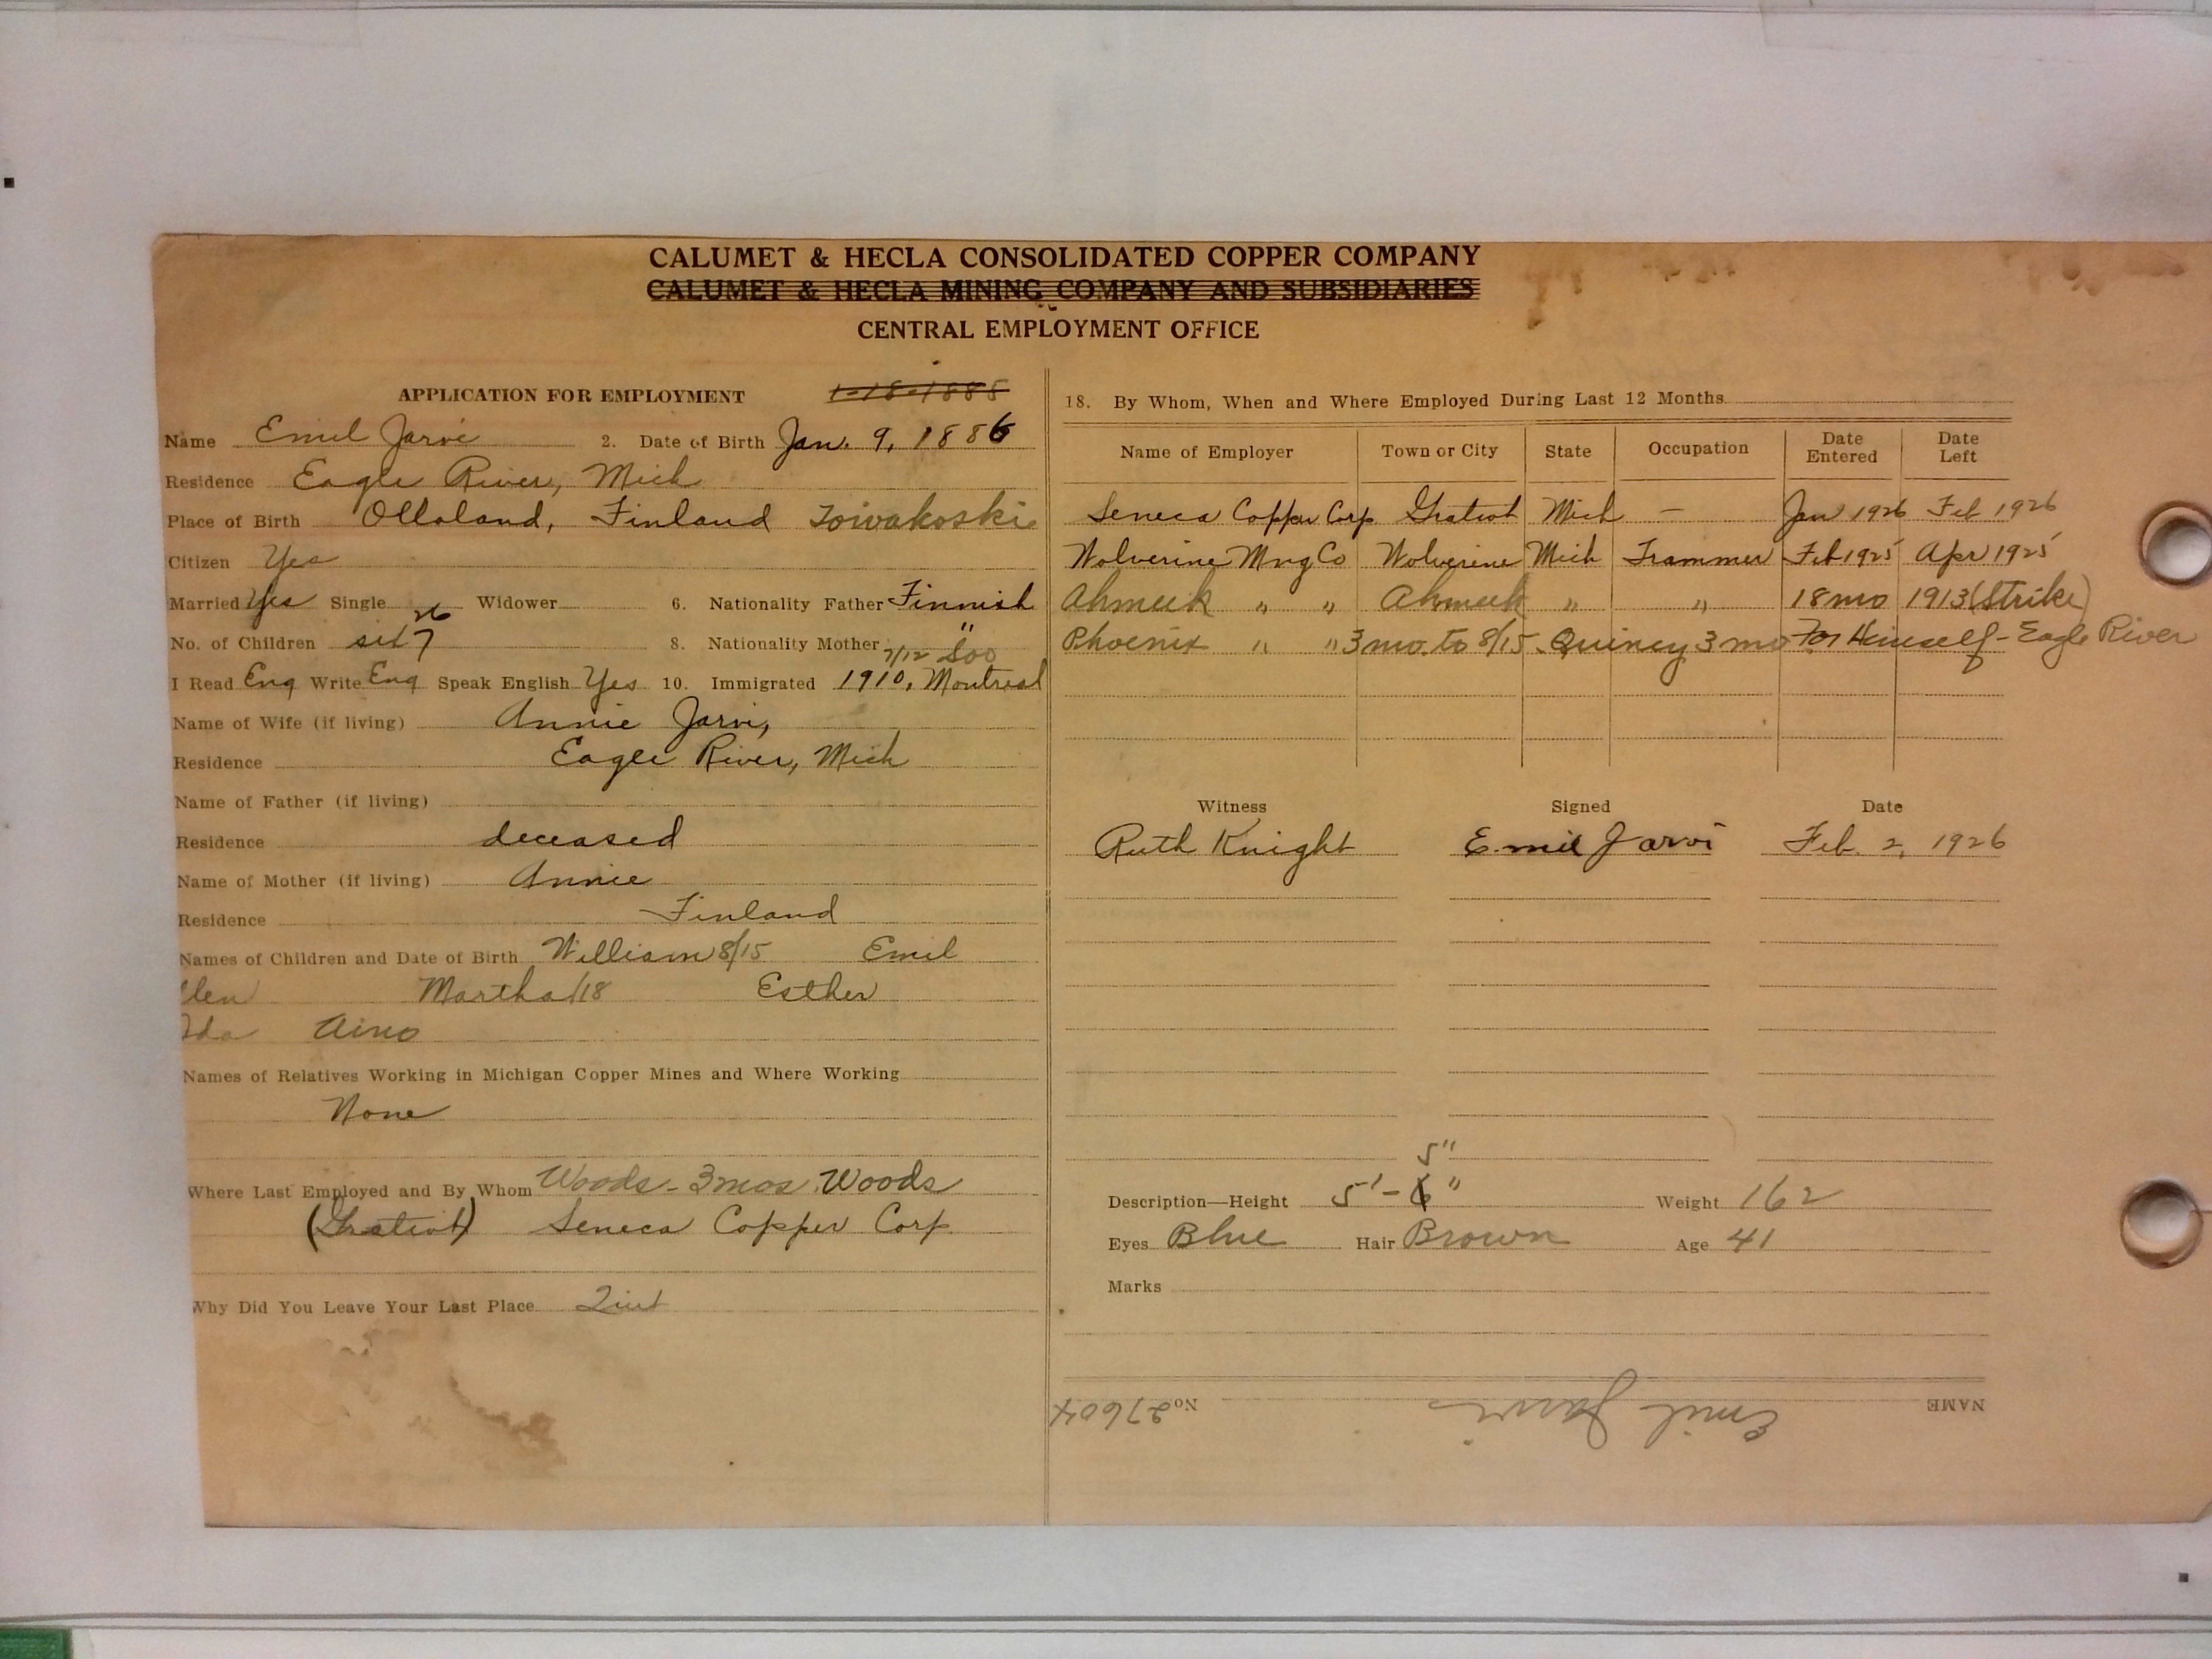 CALUMET & HECLA CONSOLIDATED COPPER COMPANY
CALUMET & HECLA MINING COMPANY AND SUBSIDIARIES
CENTRAL EMPLOYMENT OFFICE
APPLICATION FOR EMPLOYMENT 1-18-1885
Name Emil Jarvi 2. Date of Birth Jan. 9, 1886
Residence Eagle River, Mich
Place of Birth Ollaland, Finland Toivakoski
Citizen Yes
Married Yes Single Widower 6. Nationality Father Finnish
26
No. of Children six 7 8. Nationality Mother "
7/12 Soo
I Read Eng Write Eng Speak English Yes 10. Immigrated 1910, Montreal
Name of Wife (if living) Annie Jarvi,
Residence Eagle River, Mich
Name of Father (if living)
Residence deceased
Name of Mother (if living) Annie
Residence Finland
Names of Children and Date of Birth William 8/15 Emil
llen Martha /18 Esther
Ida Aino
Names of Relatives Working in Michigan Copper Mines and Where Working
None
Where Last Employed and By Whom Woods - 3 mos. Woods
(Gratiot) Seneca Copper Corp.
Why Did You Leave Your Last Place Quit
18. By Whom, When and Where Employed During Last 12 Months
Name of Employer Town or City State Occupation Date Entered Date Left
Seneca Copper Corp Gratiot Mich — Jan 1926 Feb 1926
Wolverine Mng Co Wolverine Mich Trammer Feb 1925 Apr 1925
Ahmeek " " Ahmeek " " 18 mo 1913 (Strike)
Phoenix " " 3 mo. to 8/15 - Quincy 3 mo For Himself - Eagle River
Witness Signed Date
Ruth Knight Emil Jarvi Feb. 2, 1926
5"
Description—Height 5' - 6" Weight 162
Eyes Blue Hair Brown Age 41
Marks
NAME Emil Jarvi No. 27604